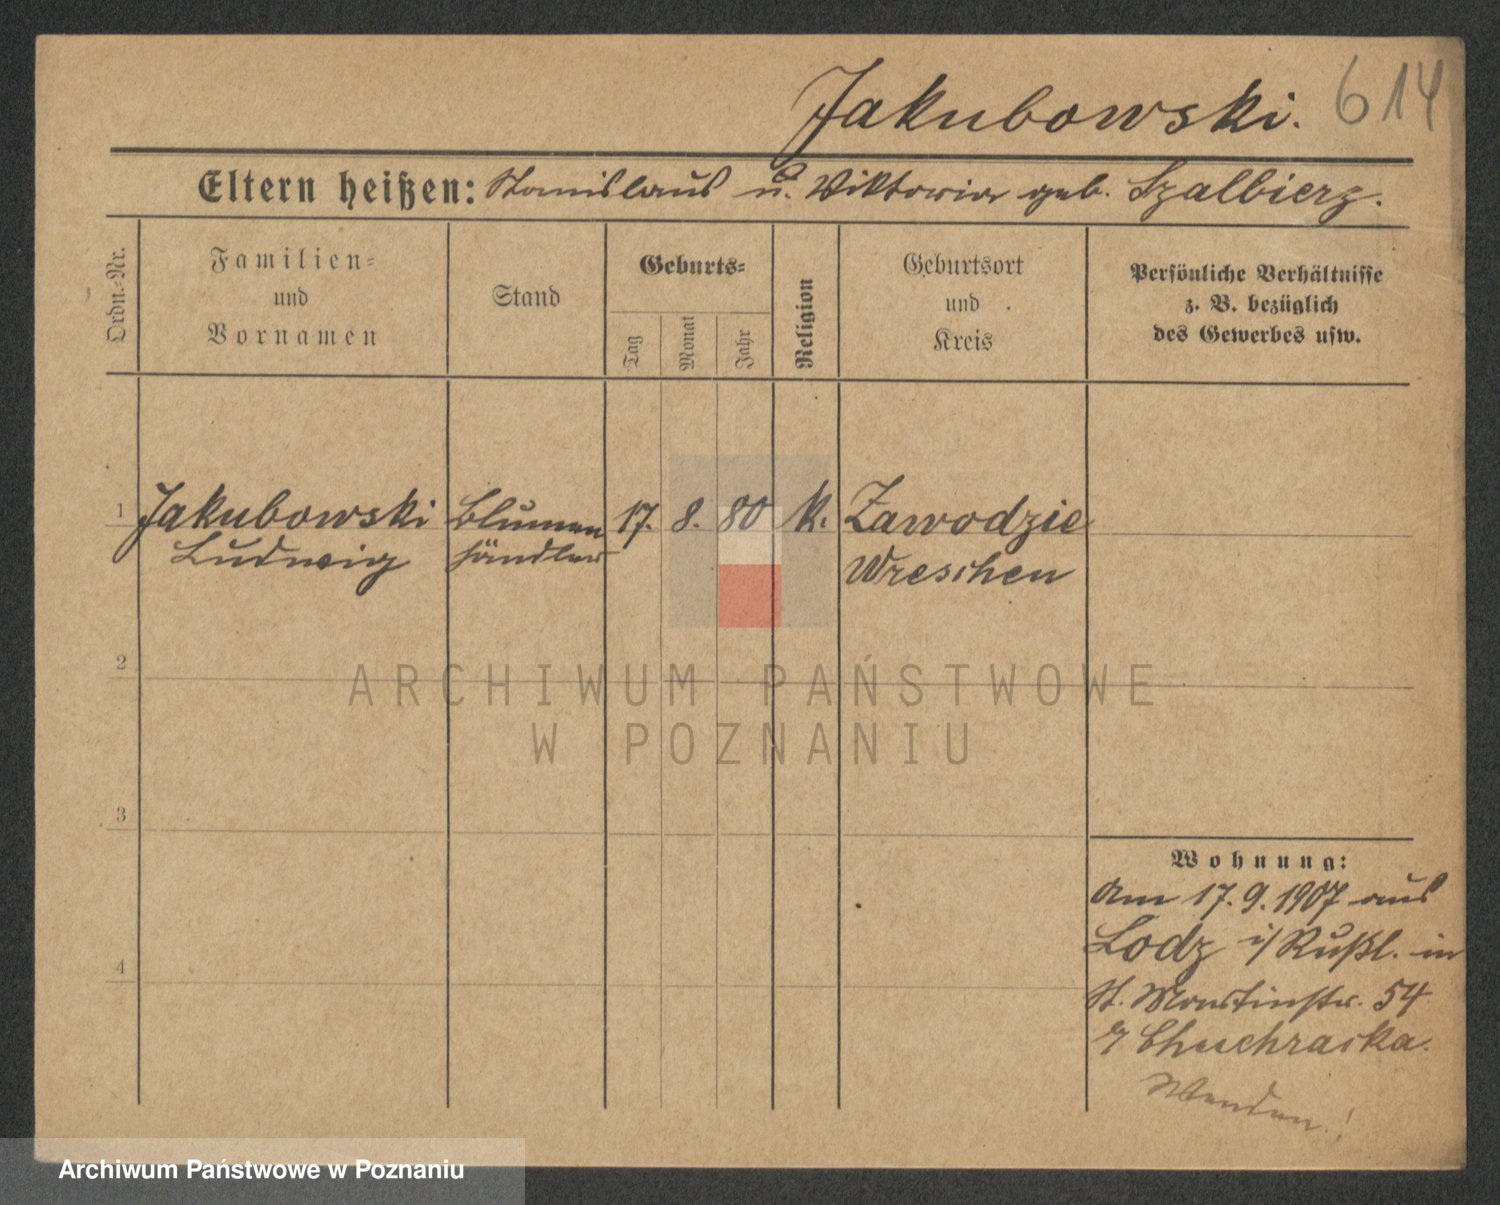 Jakubowski. 614
Eltern heißen: Stanislaus u. Viktoria geb. Szalbierz.
Ordn.-Nr.
Familien-
und
Vornamen
Stand
Geburts-
Tag
Monat
Jahr
Religion
Geburtsort
und
Kreis
Persönliche Verhältnisse
z. B. bezüglich
des Gewerbes usw.
1 Jakubowski Blumen 17. 8. 80 k. Zawodzie
Ludwig händler Wreschen
2
ARCHIWUM PAŃSTWOWE
W POZNANIU
3
Wohnung:
Am 17. 9. 1907 aus
Lodz i/ Rußl. in
4
St. Martinstr. 54
Chuchracka.
Wenden!
Archiwum Państwowe w Poznaniu